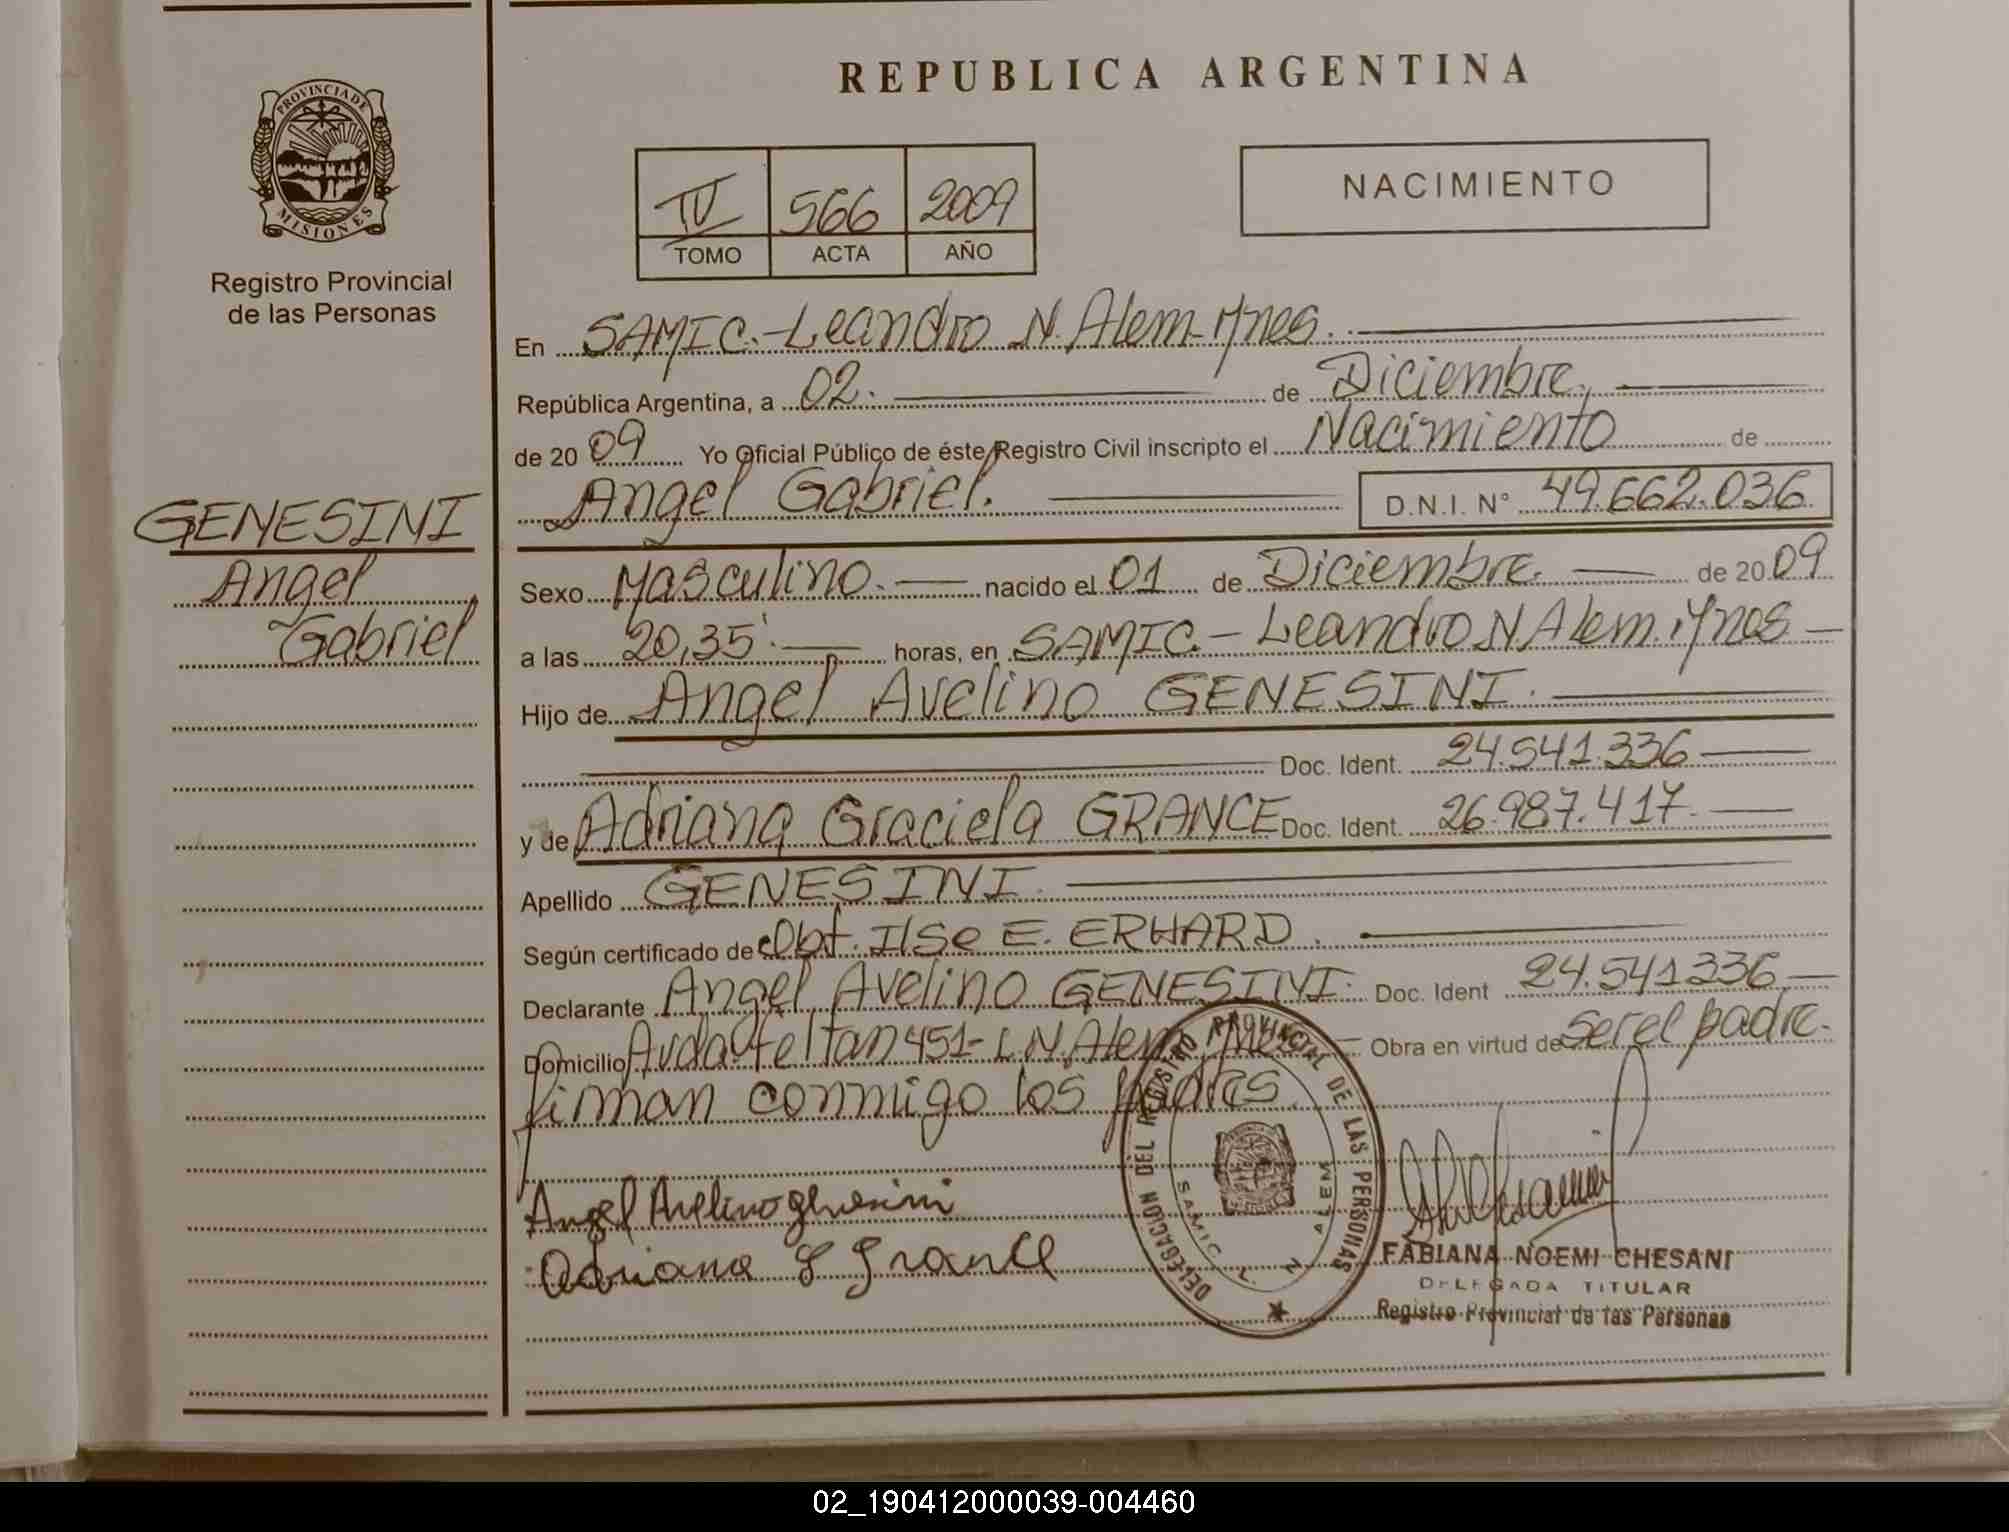 REPUBLICA ARGENTINA
PROVINCIA DE
MISIONES
Registro Provincial
de las Personas
NACIMIENTO
IV 566 2009
TOMO ACTA AÑO
En SAMIC.-Leandro N. Alem-Mnes.
República Argentina, a 02. de Diciembre.
de 2009 Yo Oficial Público de éste Registro Civil inscripto el Nacimiento de
Angel Gabriel. D.N.I. N° 49.662.036
GENESINI
Angel
Gabriel
Sexo Masculino. nacido el 01 de Diciembre. de 2009
a las 20,35'. horas, en SAMIC.- Leandro N Alem. Mnes
Hijo de Angel Avelino GENESINI.
Doc. Ident. 24.541.336
y de Adriana Graciela GRANCE Doc. Ident. 26.987.417.
Apellido GENESINI.
Según certificado de Obt. Ilse E. ERHARD.
Declarante Angel Avelino GENESINI. Doc. Ident 24.541336
Domicilio Avda 451- L N. Alem Mnes Obra en virtud de ser el padre.
firman conmigo los padres.
Angel Avelino
Adriana G Grance
DELEGACION DEL REGISTRO PROVINCIAL DE LAS PERSONAS
SAMIC L. N. ALEM
FABIANA NOEMI CHESANI
DELEGADA TITULAR
Registro Provincial de las Personas
02_190412000039-004460